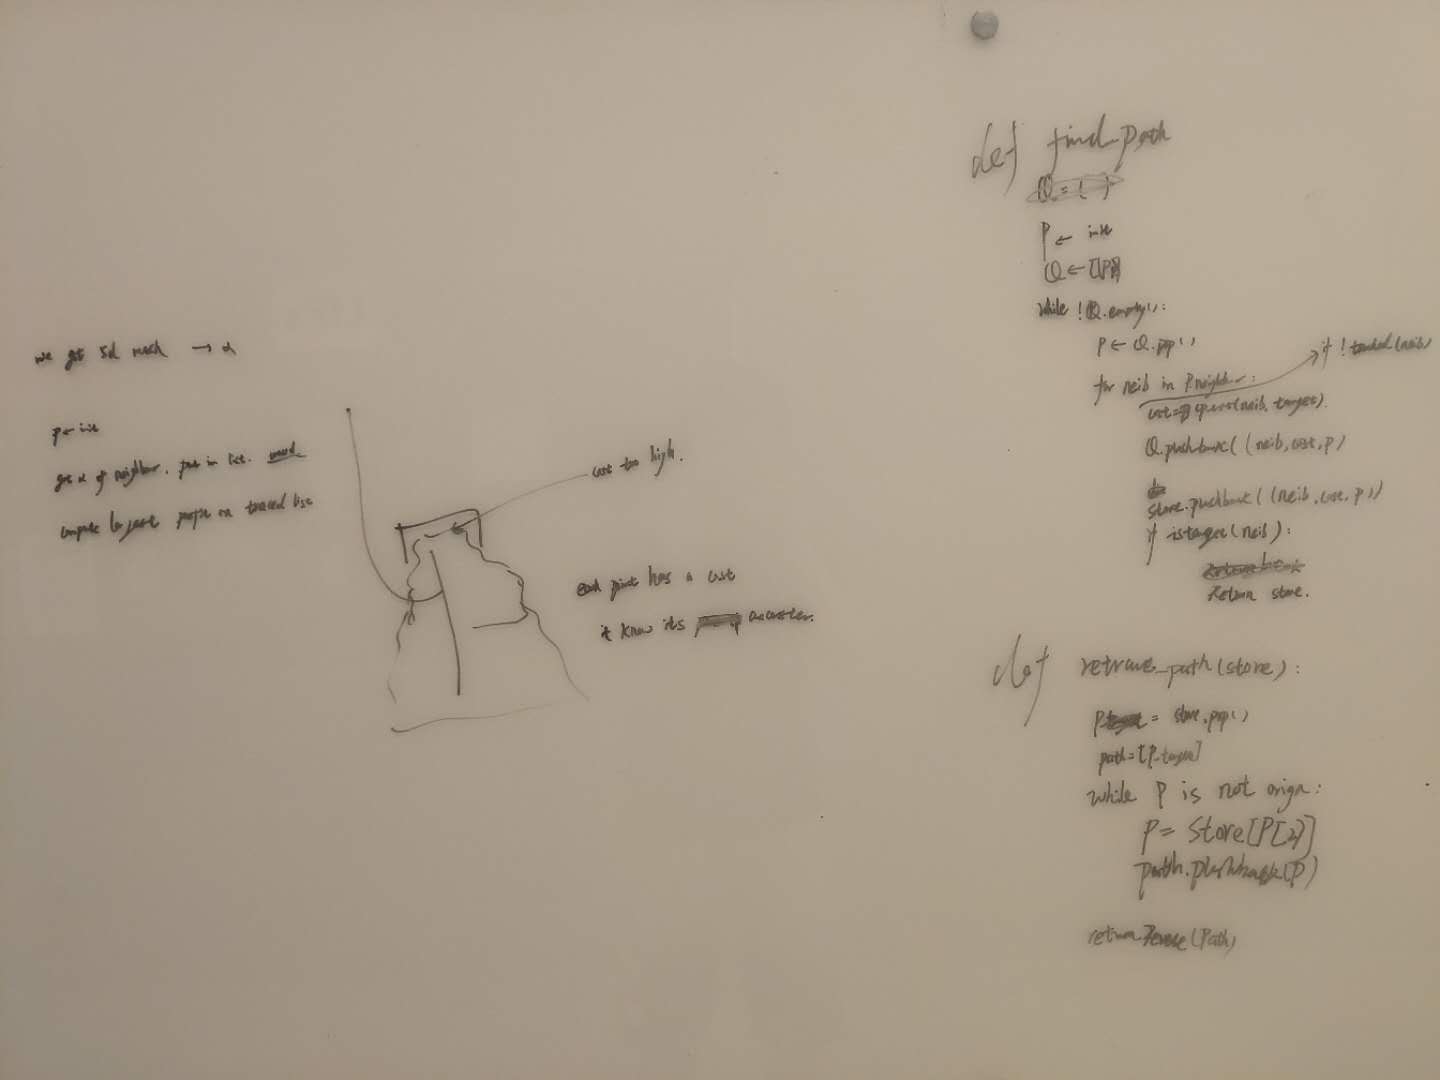 we get 3d mesh → α
p ← init
get α of neighbor, put in list.
compute largest on traced list
cost too high.
each point has a cost
it know its ancestor.
def find_path
Q = { }
P ← init
Q ← [P]
while !Q.empty():
P ← Q.pop()
for neib in P.neighbor:
if !traced(neib)
cost = (neib, target).
Q.pushback((neib, cost, P)
store.pushback((neib, cost, p))
if istarget(neib):
Return store.
def retrave_path(store):
P = store.pop()
path=[P.target]
while P is not orign:
P = Store[P[2]]
path.pushback(P)
return Reverse(Path)